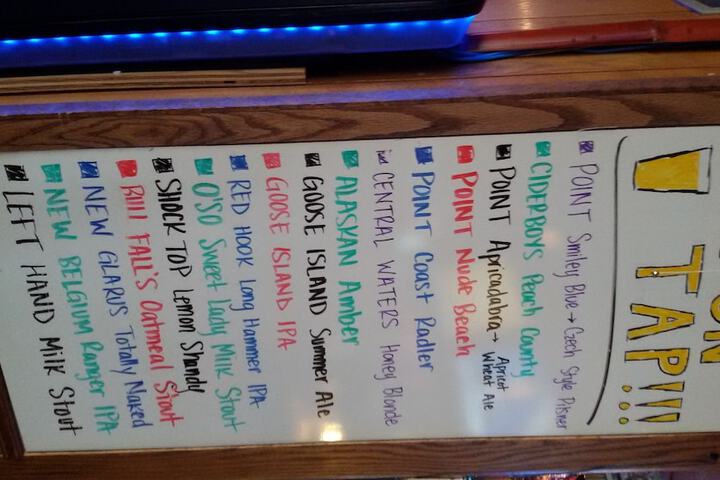 ON
TAP!!!
POINT Smiley Blue → Czech Style Pilsner
CIDERBOYS Peach County
POINT Apricadabra → Apricot Wheat Ale
POINT Nude Beach
POINT Coast Radler
CENTRAL WATERS Honey Blonde
ALASKAN Amber
GOOSE ISLAND Summer Ale
GOOSE ISLAND IPA
RED HOOK Long Hammer IPA
O'SO Sweet Lady Milk Stout
SHOCK TOP Lemon Shandy
Bill FALL'S Oatmeal Stout
NEW GLARUS Totally Naked
NEW BELGIUM Ranger IPA
LEFT HAND Milk Stout